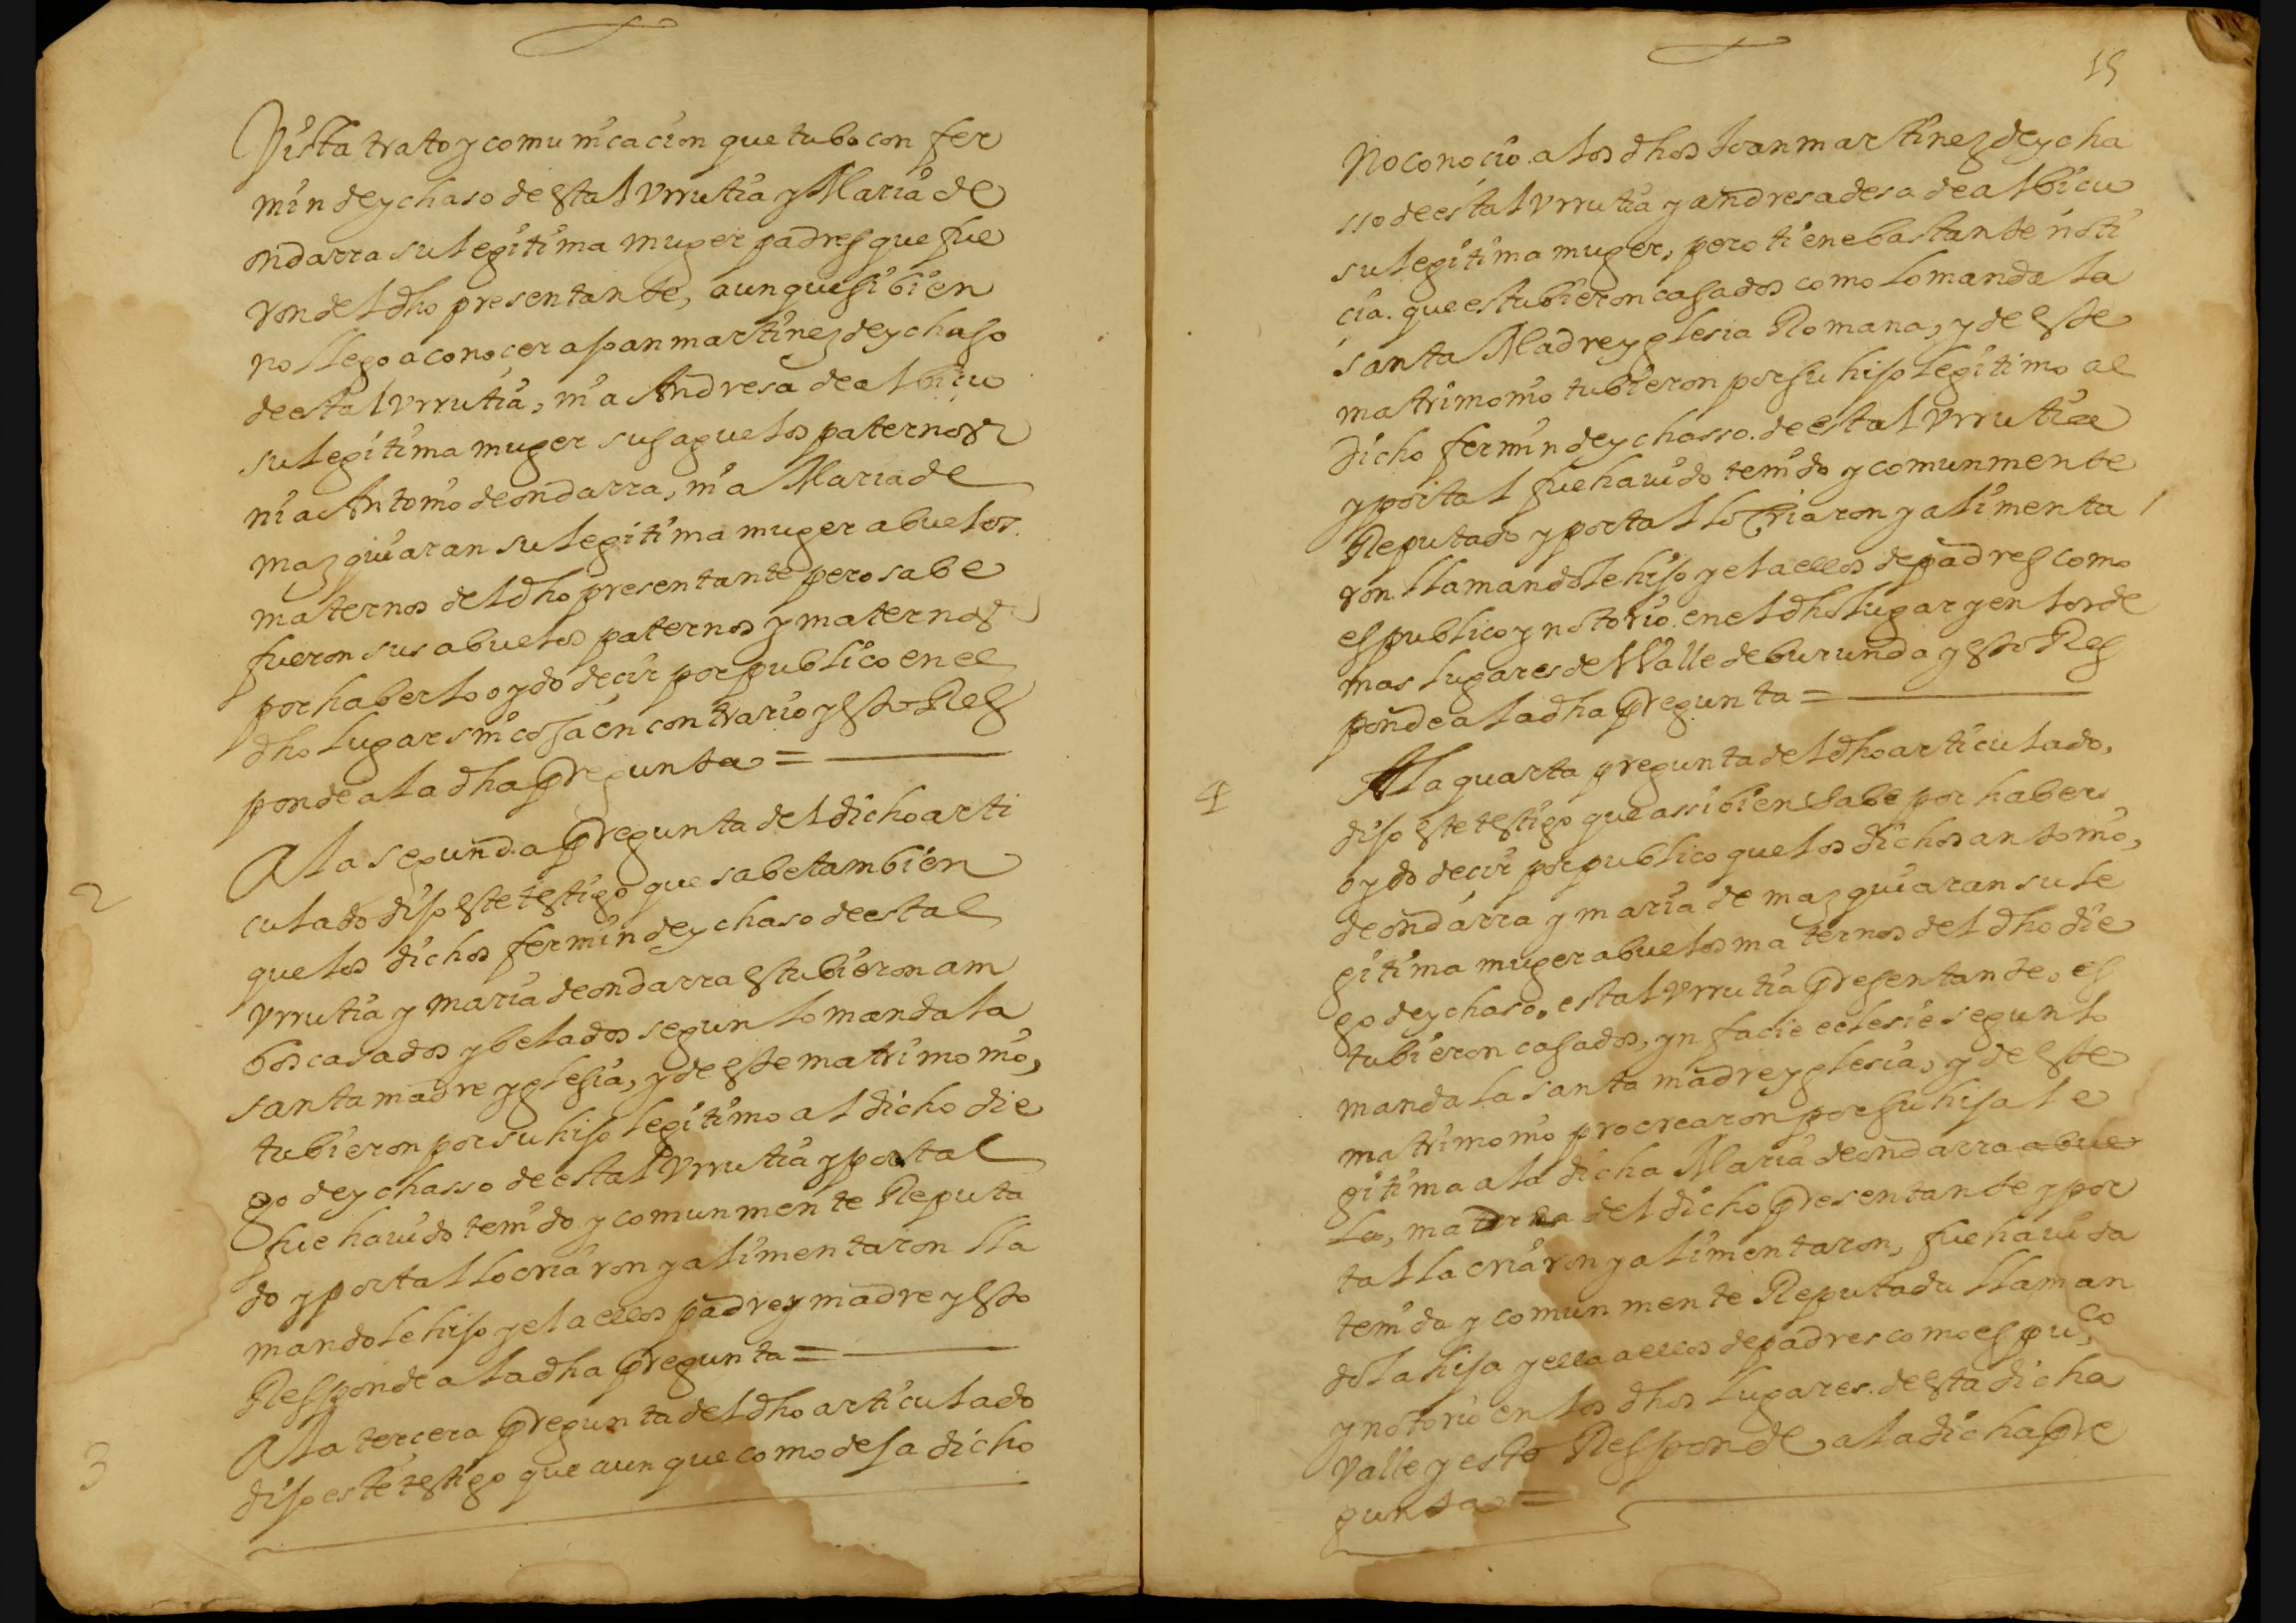 Vista trato y comunicacion que tubo con fer
min de ychaso de estal Vrrutia y Maria de
ondarra su legitima muger padres que fue
ron del dho presentante, aunque si bien
no llego a conocer a Joan martinez de ychaso
de estal Vrrutia, ni a Andresa de albiçu
su legitima muger sus aguelos paternos
ni a Antonio de ondarra, ni a Maria de
mazquiaran su legitima muger abuelos
maternos del dho presentante pero sabe
fueron sus abuelos paternos y maternos
por haberlo oydo deçir por publico en el
dho lugar sin cosa en contrario y esto Res
ponde a la dha Pregunta =
2
A la segunda Pregunta del dicho arti
culado dijo este testigo que sabe tambien
que los dichos fermin de ychaso de estal
Vrrutia y maria de ondarra estubieron am
bos casados y belados segun lo manda la
santa madre yglesia, y de este matrimonio,
tubieron por su hijo legitimo al dicho die
go de ychasso de estal Vrrutia y por tal
fue hauido tenido y comunmente Reputa
do y por tal lo criaron y alimentaron lla
mandole hijo y el a ellos padre y madre y esto
Responde a la dha Pregunta =
3
A la tercera Pregunta del dho articulado
dijo este testigo que aunque como deja dicho
15
No conoçio a los dhos Joan martinez de ycha
sso de estal Vrrutia y andresa desa de albiçu
su legitima muger, pero tiene bastante noti
cia. que estubieron casados como lo manda la
santa Madre yglesia Romana, y de este
matrimonio tubieron por su hijo legitimo al
dicho fermin de ychasso de estal Vrrutia
y por tal fue hauido tenido y comunmente
Reputado y por tal lo Criaron y alimenta
ron llamandole hijo y el a ellos de padres como
es publico y notorio en el dho lugar y en los de
mas lugares de Valle de burunda y esto Res
ponde a la dha Pregunta =
4
A la quarta pregunta del dho articulado,
dijo este testigo que assi bien sabe por haber
oydo decir por publico que los dichos antonio,
de ondarra y maria de mazquiaran su le
gitima muger abuelos maternos del dho die
go de ychaso. estal Vrrutia Presentante. es
tubieron casados, yn facie eclesie segun lo
manda la santa madre yglesia, y de este
matrimonio procrearon por su hija le
gitima a la dicha Maria de ondarra abue
la, materna del dicho Presentante y por
tal la criaron y alimentaron, fue hauida
tenida y comunmente Reputada llaman
dola hija y ella a ellos de padres como es puco
y notorio en los dhos lugares de esta dicha
Valle y esto Responde a la dicha Pre
gunta =